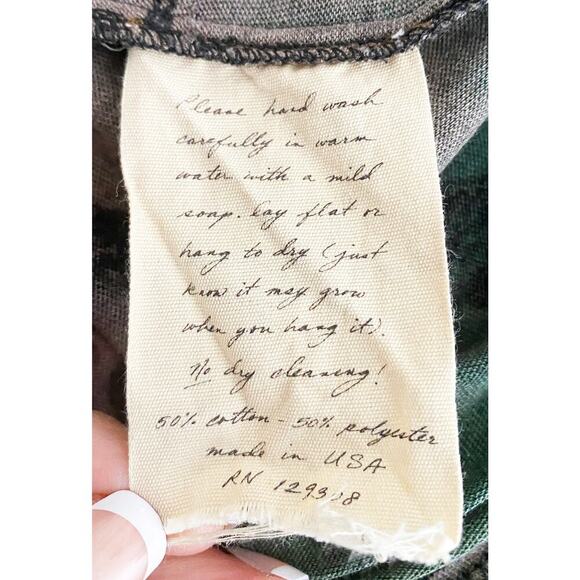 Please hand wash
carefully in warm
water with a mild
soap. Lay flat or
hang to dry (just
know it may grow
when you hang it).
No dry cleaning!
50% cotton - 50% polyester
made in USA
RN